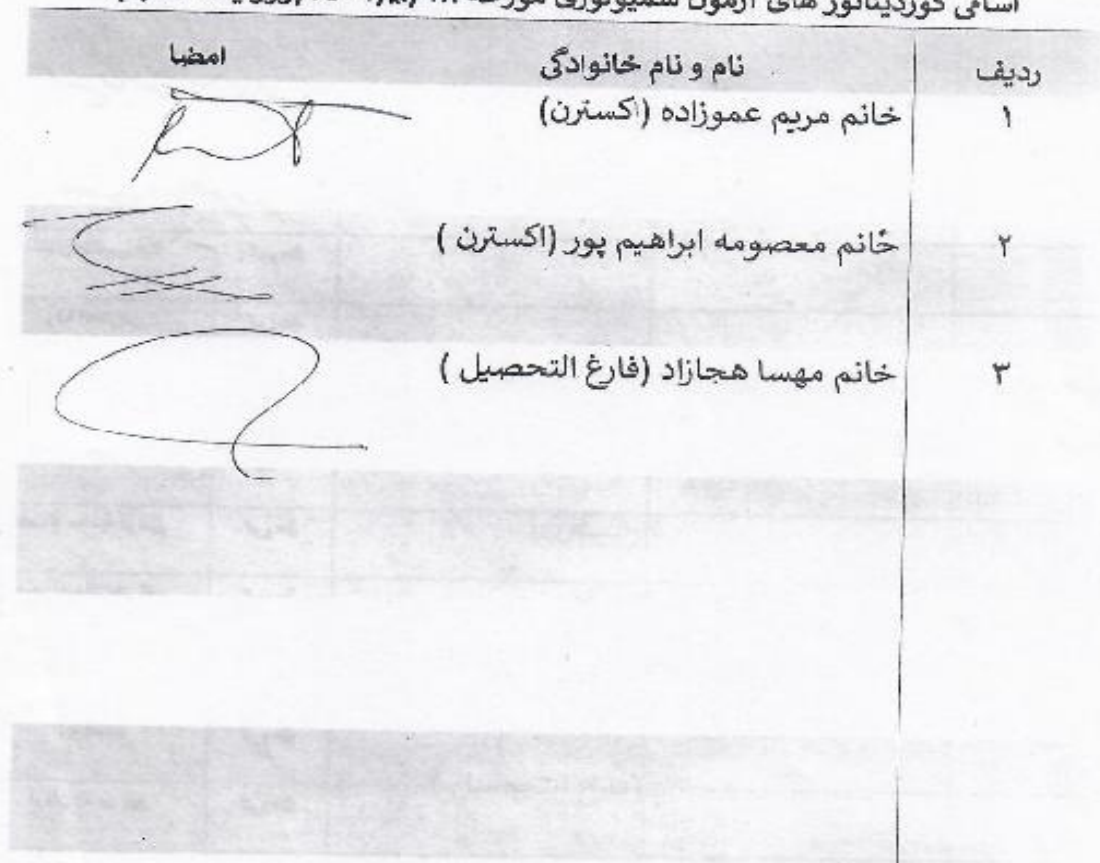 اسامی کوردیناتور های آزمون سمیولوژی مورخه
ردیف نام و نام خانوادگی امضا
۱ خانم مریم عموزاده (اکسترن)
۲ خانم معصومه ابراهیم پور (اکسترن )
۳ خانم مهسا هجازاد (فارغ التحصیل )